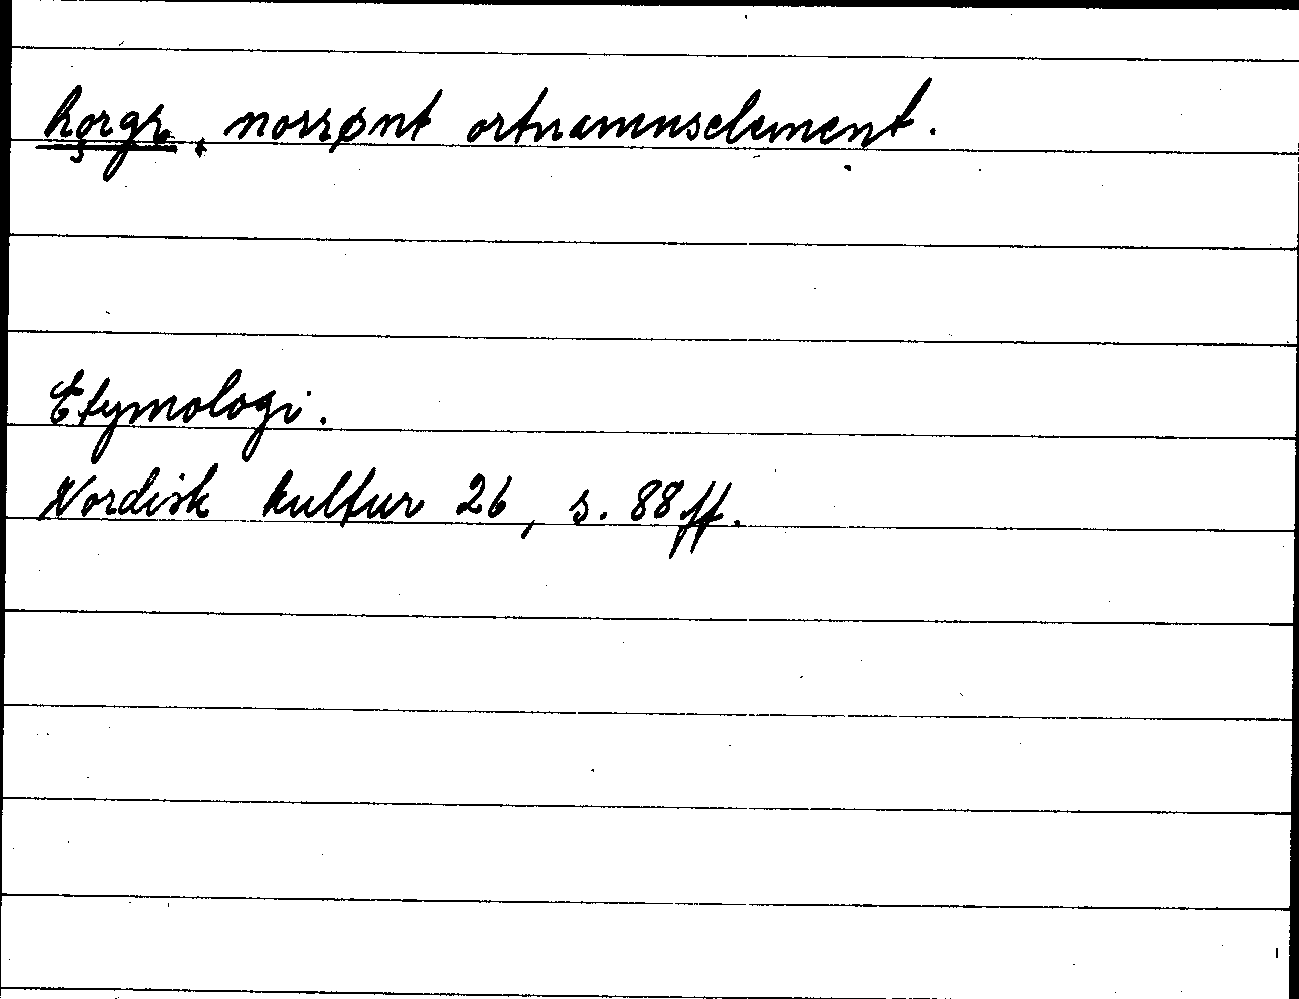 hǫrgr, norrønt ortnamnselement.
Etymologi.
Nordisk kultur 26, s. 88 ff.